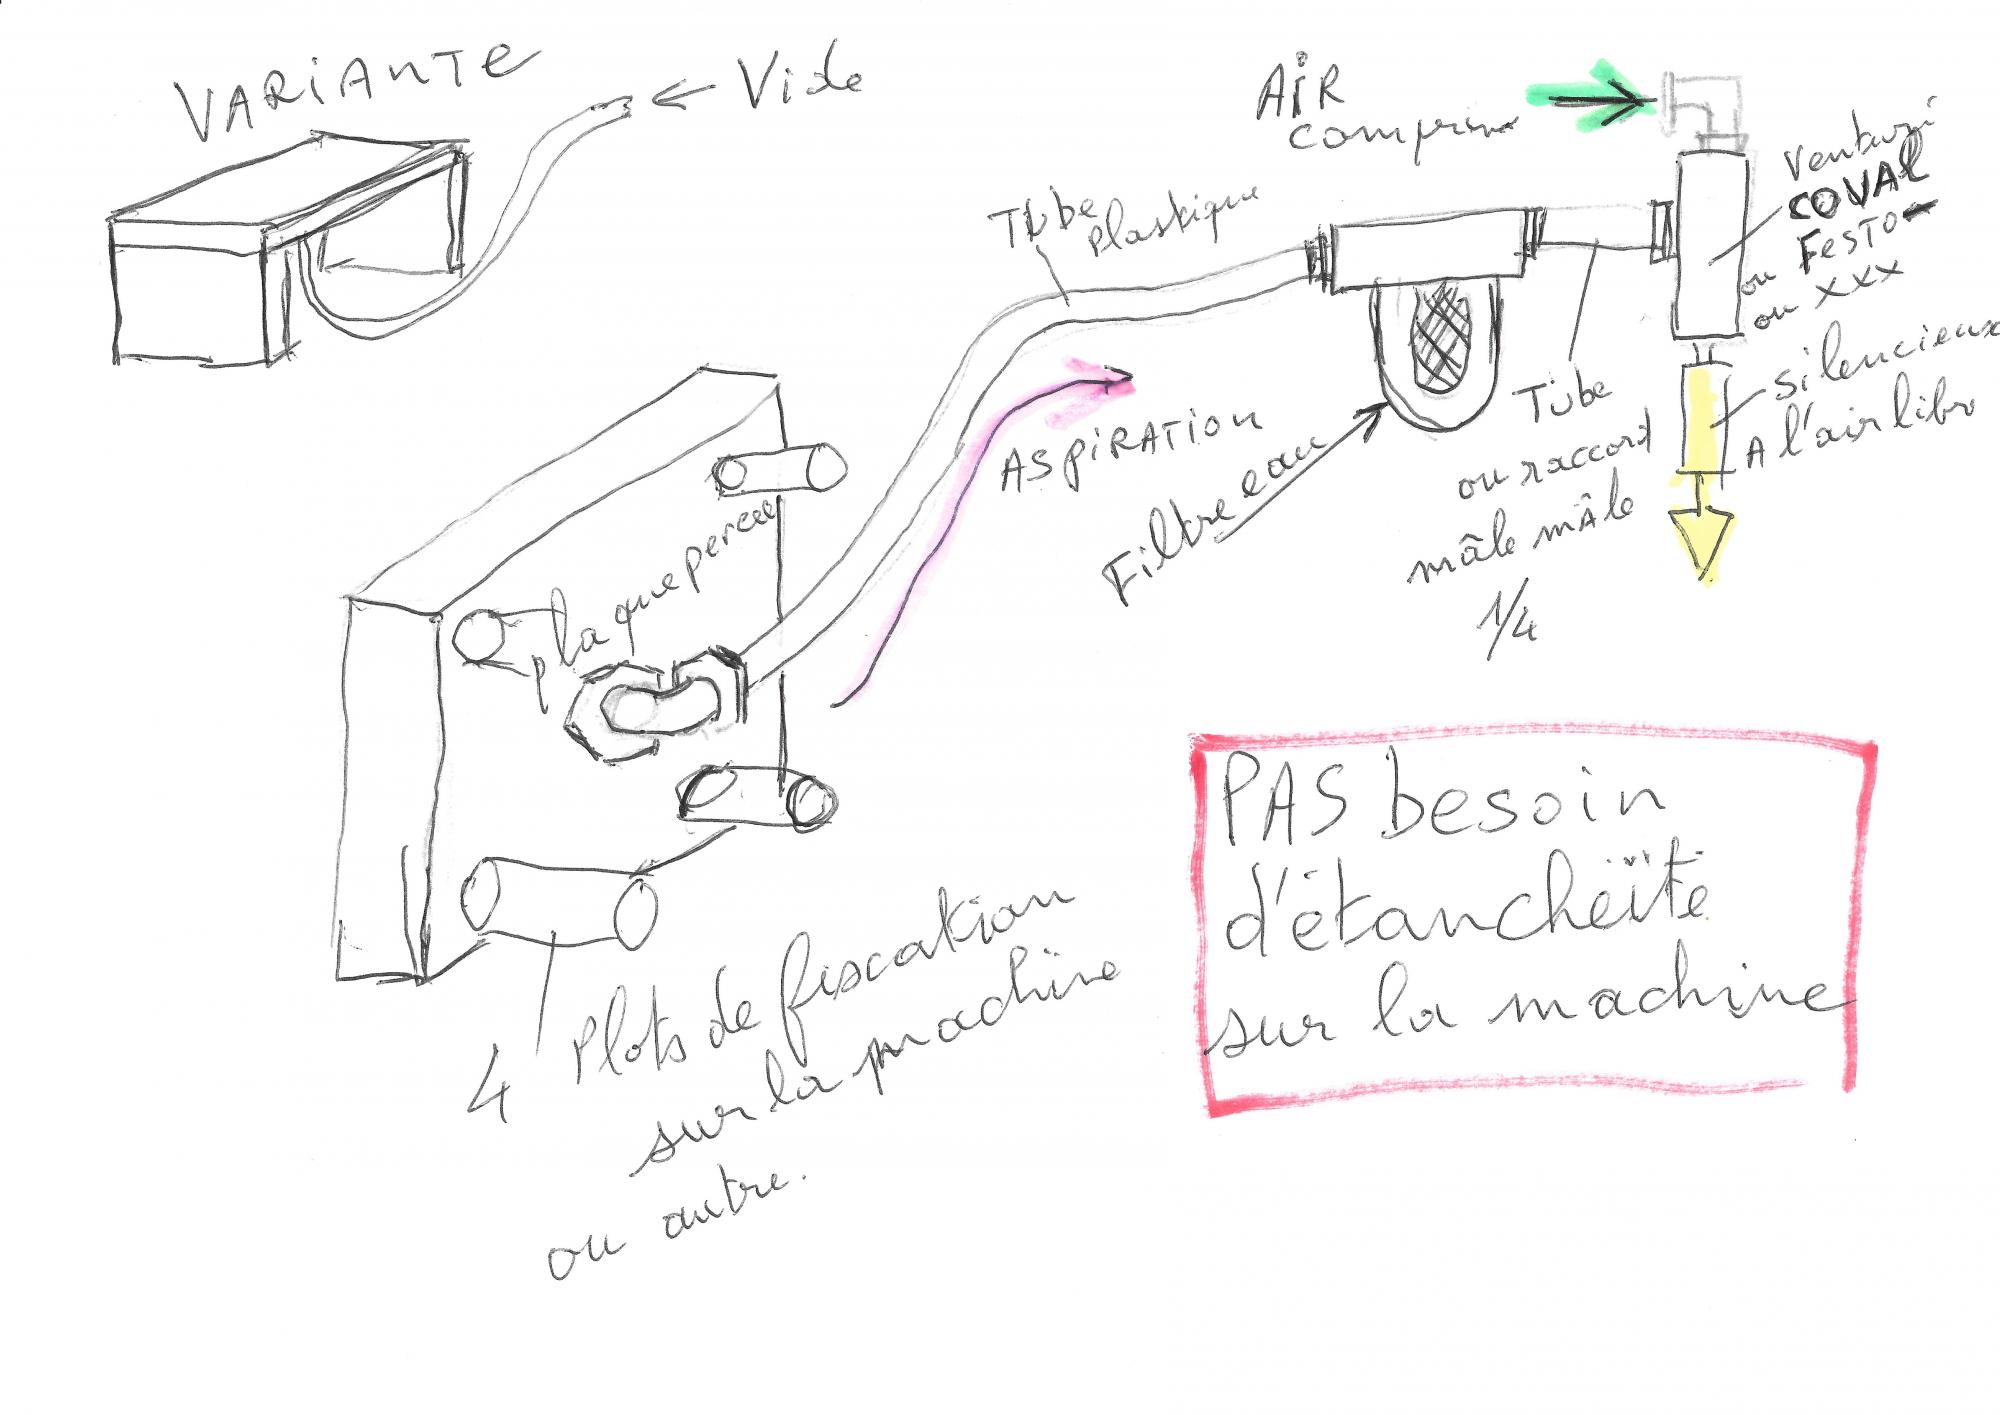 VARIANTE
← Vide
AIR
comprimé
Venturi
COVAL
ou FESTO
ou xxx
Tube
plastique
silencieux
A l'air libre
ASPIRATION
Filtre eau
Tube
ou raccord
mâle mâle
1/4
plaque percée
4 Plots de fixation
sur la machine
ou autre.
PAS besoin
d'étancheïté
sur la machine